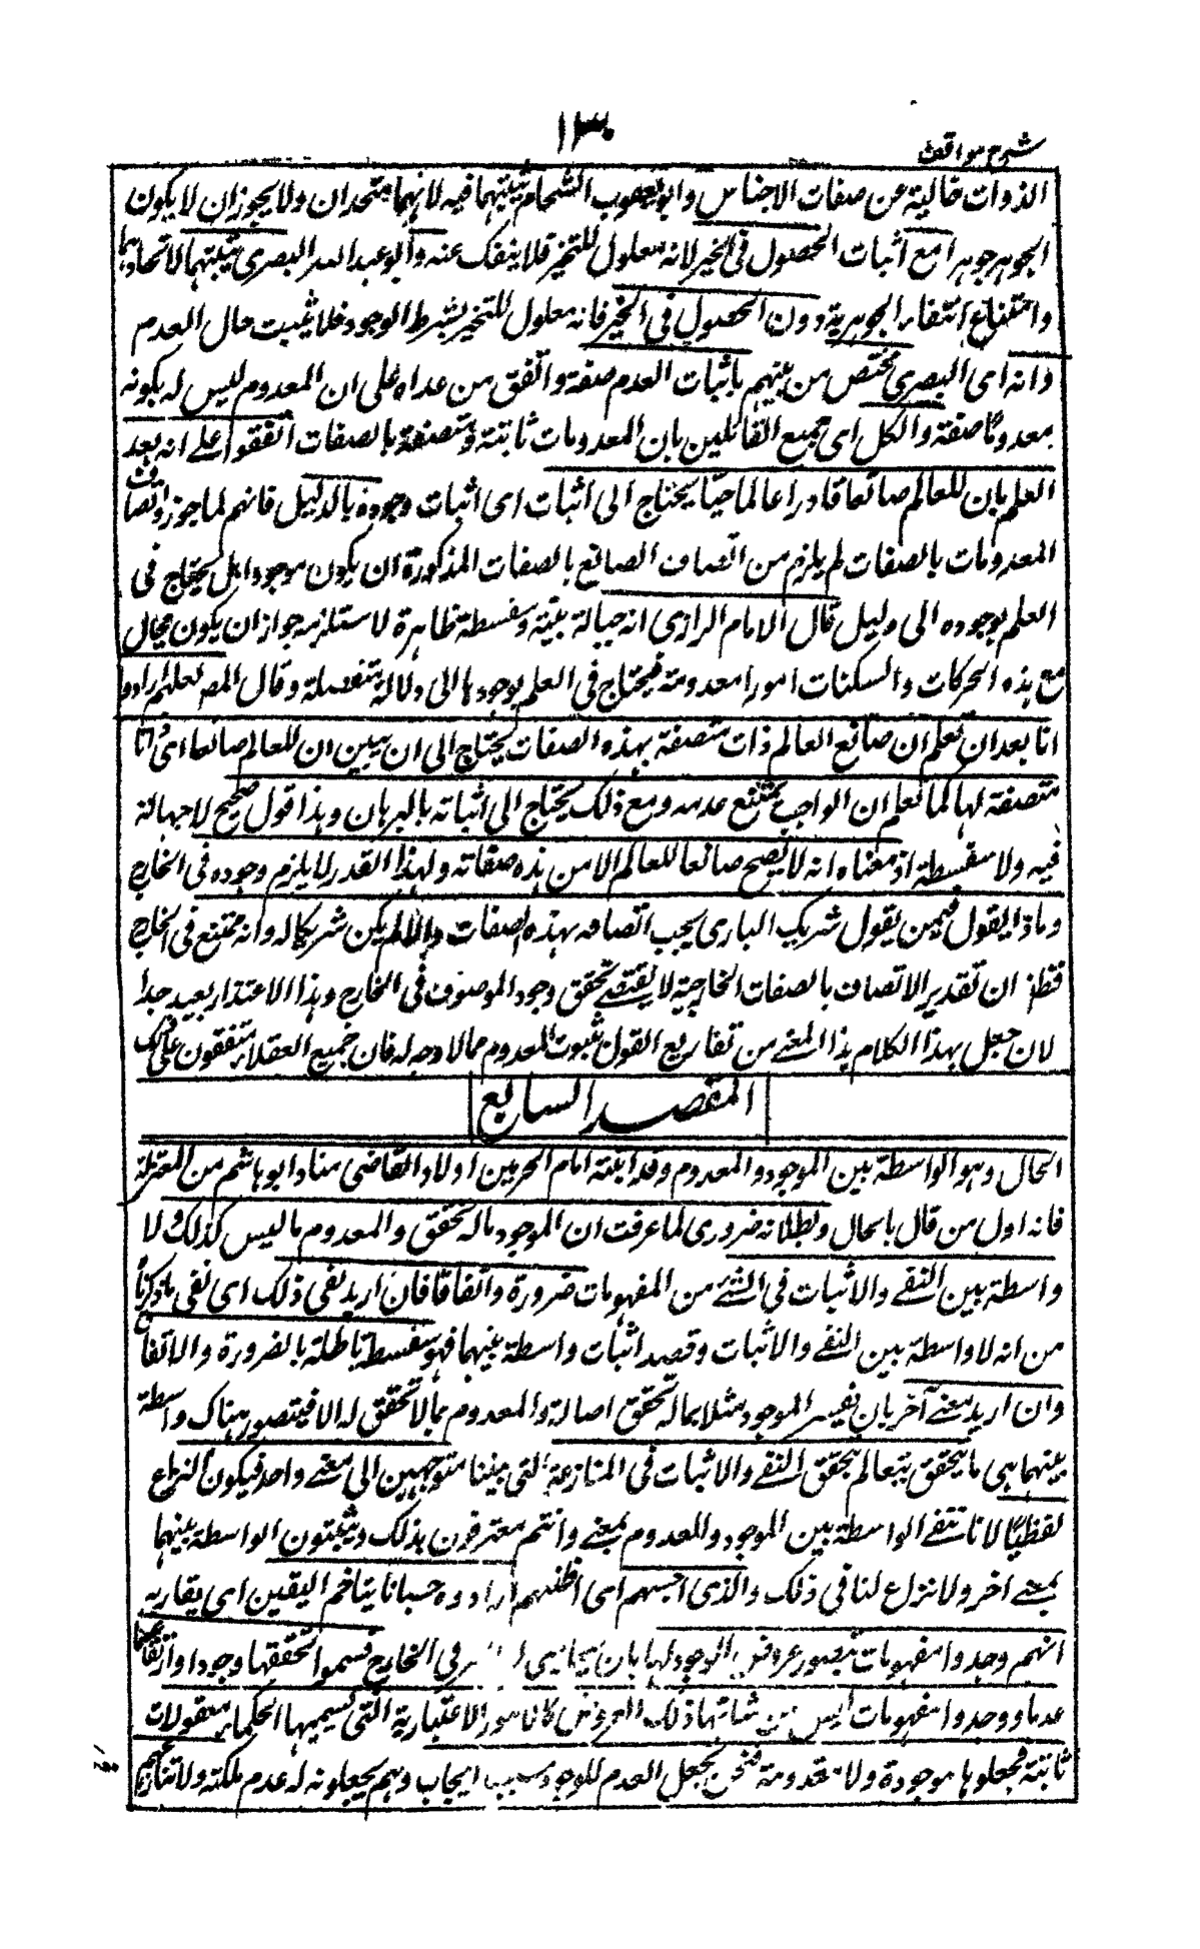 ١٣٠
شرح مواقف
الذوات خالية عن صفات الاجناس وابو يعقوب الشحام يثبتهما فيه لانهما متحدان ولا يجوز ان لا يكون
الجوهر جوهرا مع اثبات الحصول فى الحيز لانه معلول للتحيز فلا ينفك عنه وابو عبد الله البصرى يثبتهما لاتحادهما
وامتناع انتفاء الجوهرية دون الحصول فى الحيز فانه معلول للتحيز بشرط الوجود فلا يثبت حال العدم
وانه اى البصرى مختص من بينهم باثبات العدم صفة واتفق من عداه على ان المعدوم ليس له بكونه
معدوما صفة والكل اى جميع القائلين بان المعدومات ثابتة ومتصفة بالصفات اتفقوا على انه بعد
العلم بان للعالم صانعا قادرا عالما حيا يحتاج الى اثبات اى اثبات وجوده بالدليل فانهم لما جوزوا اتصاف
المعدومات بالصفات لم يلزم من اتصاف الصانع بالصفات المذكورة ان يكون موجودا بل يحتاج فى
العلم بوجوده الى دليل قال الامام الرازى انه جهالة بينة وسفسطة ظاهرة لاستلزامه جواز ان يكون محال
مع هذه الحركات والسكنات امورا معدومة فيحتاج فى العلم بوجودها الى دلالة منفصلة وقال المص لعلهم ارادوا
انا بعد ان نعلم ان صانع العالم ذات متصفة بهذه الصفات يحتاج الى ان يبين ان للعالم صانعا اى ذاتا
متصفة لها كما نعلم ان الواجب يمتنع عدمه ومع ذلك يحتاج الى اثباته بالبرهان وهذا قول صحيح لا جهالة
فيه ولا سفسطة اذ معناه انه لا يصح صانعا للعالم الا من هذه صفاته ولهذا القدر لا يلزم وجوده فى الخارج
وماذا يقول فيمن يقول شريك البارى يجب اتصافه بهذه الصفات والا لم يكن شريكا له وانه ممتنع فى الخارج
فظهر ان تقدير الاتصاف بالصفات الخارجية لا يقتضى تحقق وجود الموصوف فى الخارج وهذا الاعتذار بعيد جدا
لان جعل بهذا الكلام بذا المعنى من تفاريع القول بثبوت المعدوم مما لا وجه له فان جميع العقلاء متفقون على ذلك
المقصد السابع
الحال وهو الواسطة بين الموجود والمعدوم وقد اثبته امام الحرمين اولا والقاضى منا وابو هاشم من المعتزلة
فانه اول من قال بالحال وبطلانه ضرورى لما عرفت ان الموجود ماله تحقق والمعدوم ما ليس كذلك ولا
واسطة بين النفى والاثبات فى الشئ من المفهومات ضرورة واتفاقا فان اريد نفى ذلك اى نفى ما ذكرنا
من انه لا واسطة بين النفى والاثبات وقصد اثبات واسطة بينهما فهو سفسطة باطلة بالضرورة والاتفاق
وان اريد معنى آخر بان يفسر الموجود مثلا بما له تحقق اصالة والمعدوم بما لا تحقق له الا فيتصور هناك واسطة
بينهما هى ما يتحقق تبعا لم يتحقق النفى والاثبات فى المنازعة التى بيننا متوجهين الى معنى واحد فيكون النزاع
لفظيا لانا ننفى الواسطة بين الموجود والمعدوم بمعنى وانتم معترفون بذلك وتثبتون الواسطة بينهما
بمعنى اخر ولا نزاع لنا فى ذلك والذى احسبهم اى اظنهم ارادوه حسبانا يتاخم اليقين اى يقاربه
انهم وجدوا مفهومات يتصور عروض الوجود لها بان يحاذى فى الخارج فسموا تحققها وجودا وارتفاعها
عدما ووجدوا مفهومات ليس من شانها ذلك العروض كالامور الاعتبارية التى يسميها الحكماء معقولات
ثانية فجعلوها موجودة ولا معدومة فنحن نجعل العدم للوجود سلب ايجاب وهم يجعلونه له عدم ملكة ولا تنازعهم